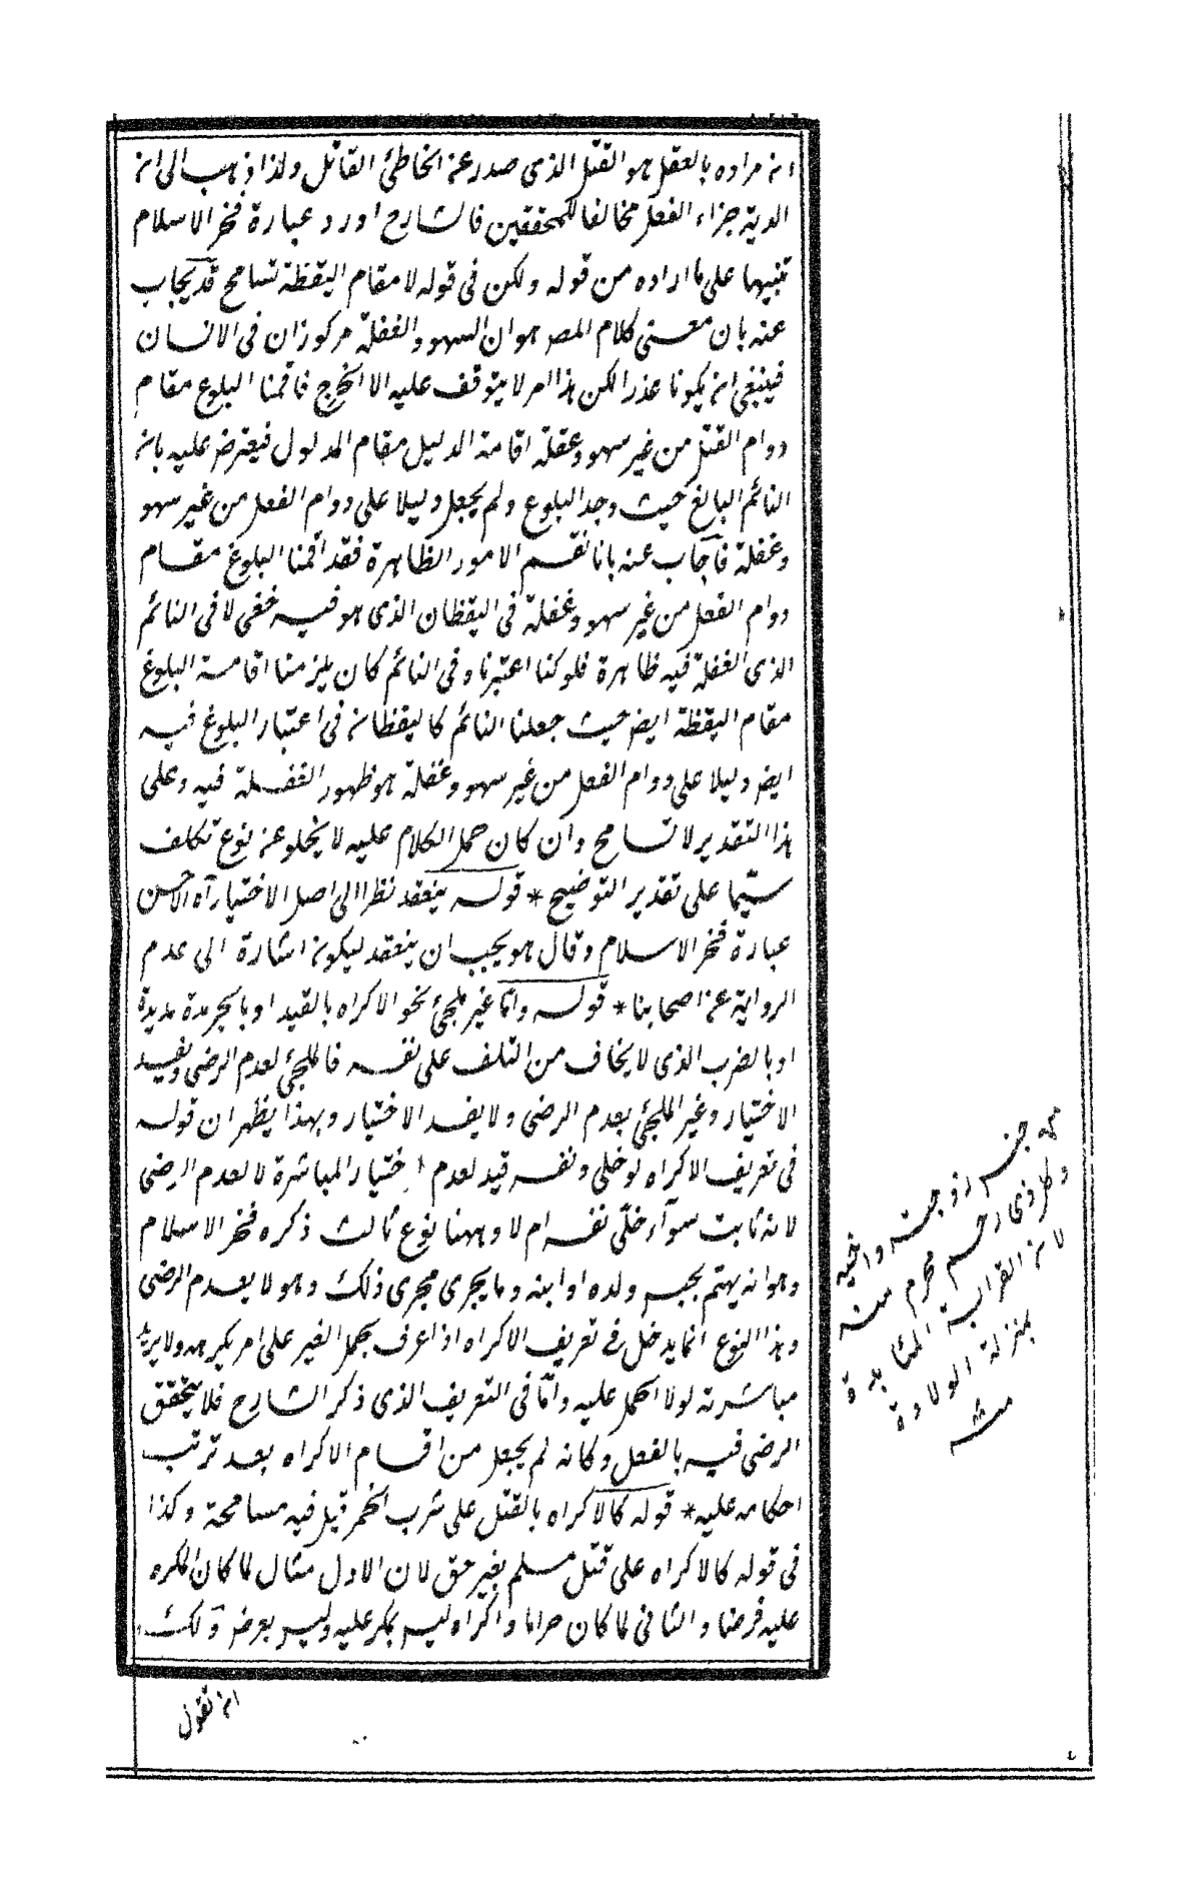 ان مراده بالعقل هو القتل الذى صدر عن الخاطئ القاتل ولذا ذهب الى ان
الدية جزاء الفعل مخالفا للمحققين فالشارح اورد عبارة فخر الاسلام
تنبيها على ما اراده من قوله ولكن فى قوله لا مقام اليقظة تسامح قد يجاب
عنه بان معنى كلام المصـ هو ان السهو والغفلة مركوزان فى الانسان
فينبغى ان يكونا عذرا لكن هذا امر لا يتوقف عليه الا الخرج فاقمنا البلوغ مقام
دوام القتل من غير سهو وعقلة اقامة الدليل مقام المدلول فيعترض عليه بان
النائم البالغ حيث وجد البلوغ ولم يجعل دليلا على دوام الفعل من غير سهو
وغفلة فاجاب عنه بانا نقسم الامور الظاهرة فقد اقمنا البلوغ مقام
دوام الفعل من غير سهو وغفلة فى اليقظان الذى هو فيه خفى لا فى النائم
الذى الغفلة فيه ظاهرة فلو كنا اعتبرناه فى النائم كان يلزمنا اقامة البلوغ
مقام اليقظة ايضـ حيث جعلنا النائم كاليقظان فى اعتبار البلوغ فيه
ايضـ دليلا على دوام الفعل من غير سهو وغفلة هو ظهور الغفلة فيه وعلى
هذا التقدير لا تسامح وان كان حمل الكلام عليه لا يخلو عن نوع تكلف
سيما على تقدير التوضيح * قوله ينعقد نظرا الى اصل الاختيار آه الاحسن
عبارة فخر الاسلام وقال هو يجب ان ينعقد ليكون اشارة الى عدم
الرواية عن اصحابنا * قوله واما غير ملجئ نحو الاكراه بالقيد او بالحبر مدة مديدة
او بالضرب الذى لا يخاف من التلف على نفسه فالملجئ لعدم الرضى ويفسد
الاختيار وغير الملجئ بعدم الرضى ولا يفسد الاختيار وبهذا يظهر ان قوله
فى تعريف الاكراه لو خلى ونفسه قيد لعدم اختيار المباشرة لا لعدم الرضى
لانه ثابت سوآء خلّى نفسه ام لا وههنا نوع ثالث ذكره فخر الاسلام
وهو انه يهتم بحبس ولده او ابنه وما يجرى مجرى ذلك وهو لا يعدم الرضى
وهذا النوع انما يدخل فى تعريف الاكراه اذا عرف بحمل الغير على امر يكرهه ولا يريد
مباشرته لولا الحمل عليه واما فى التعريف الذى ذكر الشارح فلا يتحقق
الرضى فيه بالفعل وكانه لم يجعل من اقسام الاكراه بعد ترتب
احكامه عليه * قوله كالاكراه بالقتل على شرب الخمر قيل فيه مسامحة وكذا
فى قوله كالاكراه على قتل مسلم بغير حق لان الاول مثال لما كان المكره
عليه فرضا والثانى لما كان حراما واكراه ليس بمكره عليه وليس بعرض ولك
ان تقول
حبس زوجته واخيه
وكل ذى رحم محرم منه
لان القرابة المتأبدة
بمنزلة الولادة
منه